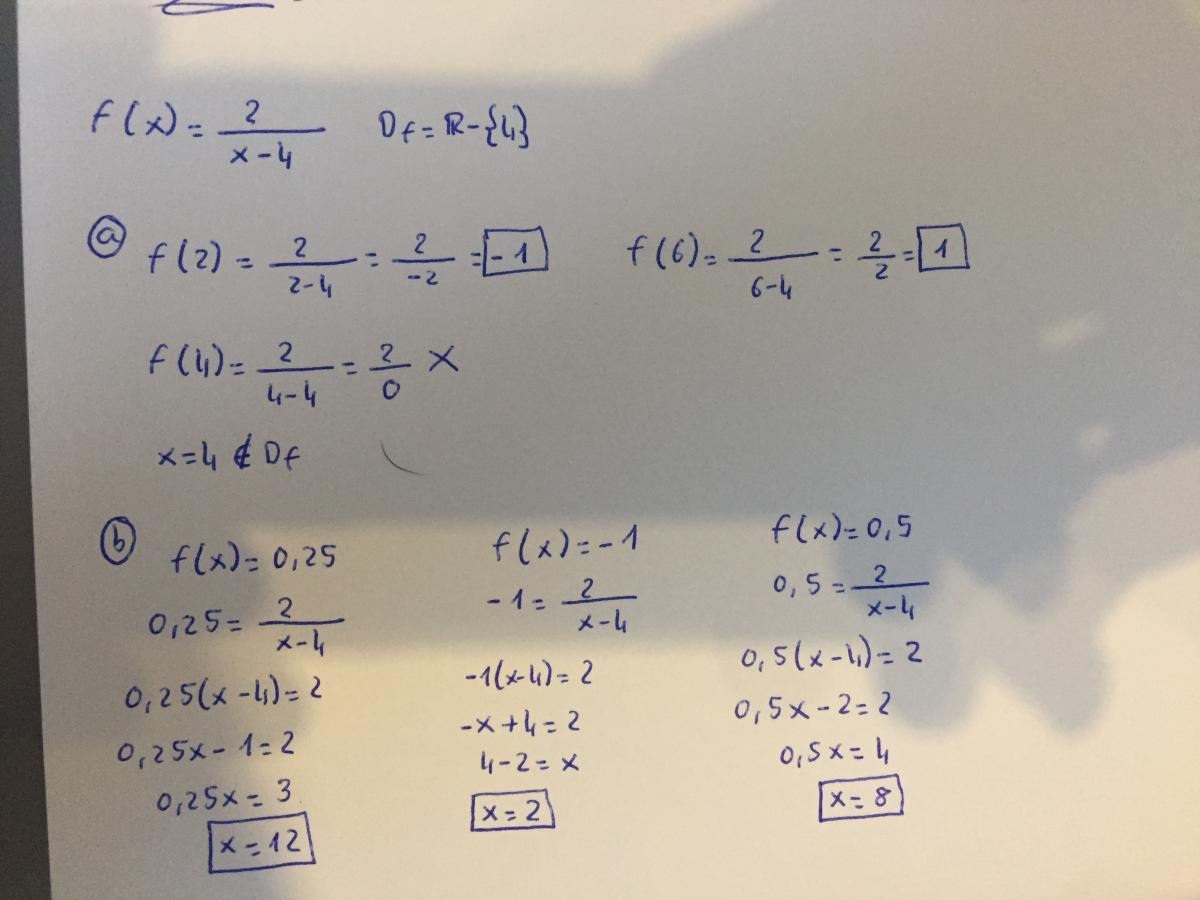 f(x) = 2/(x-4) Df = ℝ-{4}
ⓐ f(2) = 2/(2-4) = 2/-2 = -1 f(6) = 2/(6-4) = 2/2 = 1
f(4) = 2/(4-4) = 2/0 X
x=4 ∉ Df
ⓑ f(x) = 0,25
0,25 = 2/(x-4)
0,25(x-4) = 2
0,25x - 1 = 2
0,25x = 3
x = 12
f(x) = -1
-1 = 2/(x-4)
-1(x-4) = 2
-x+4 = 2
4-2 = x
x = 2
f(x) = 0,5
0,5 = 2/(x-4)
0,5(x-4) = 2
0,5x-2 = 2
0,5x = 4
x = 8